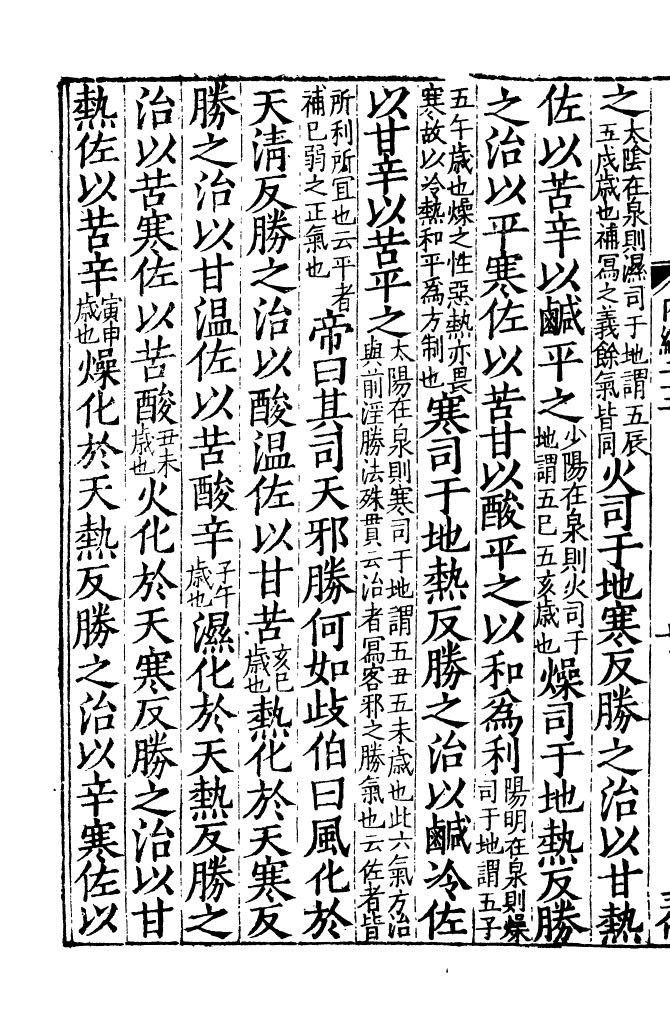 之太陰在泉則濕司于地謂五辰五戌歲也補寫之義餘氣皆同火司于地寒反勝之治以甘熱
佐以苦辛以鹹平之少陽在泉則火司于地謂五巳五亥歲也燥司于地熱反勝
之治以平寒佐以苦甘以酸平之以和為利陽明在泉則燥司于地謂五子
五午歲也燥之性惡熱亦畏寒故以冷熱和平為方制也寒司于地熱反勝之治以鹹冷佐
以甘辛以苦平之太陽在泉則寒司于地謂五丑五未歲也此六氣方治與前淫勝法殊貫云治者寫客邪之勝氣也云佐者皆
所利所宜也云平者補已弱之正氣也帝曰其司天邪勝何如歧伯曰風化於
天清反勝之治以酸温佐以甘苦亥巳歲也熱化於天寒反
勝之治以甘温佐以苦酸辛子午歲也濕化於天熱反勝之
治以苦寒佐以苦酸丑未歲也火化於天寒反勝之治以甘
熱佐以苦辛寅申歲也燥化於天熱反勝之治以辛寒佐以